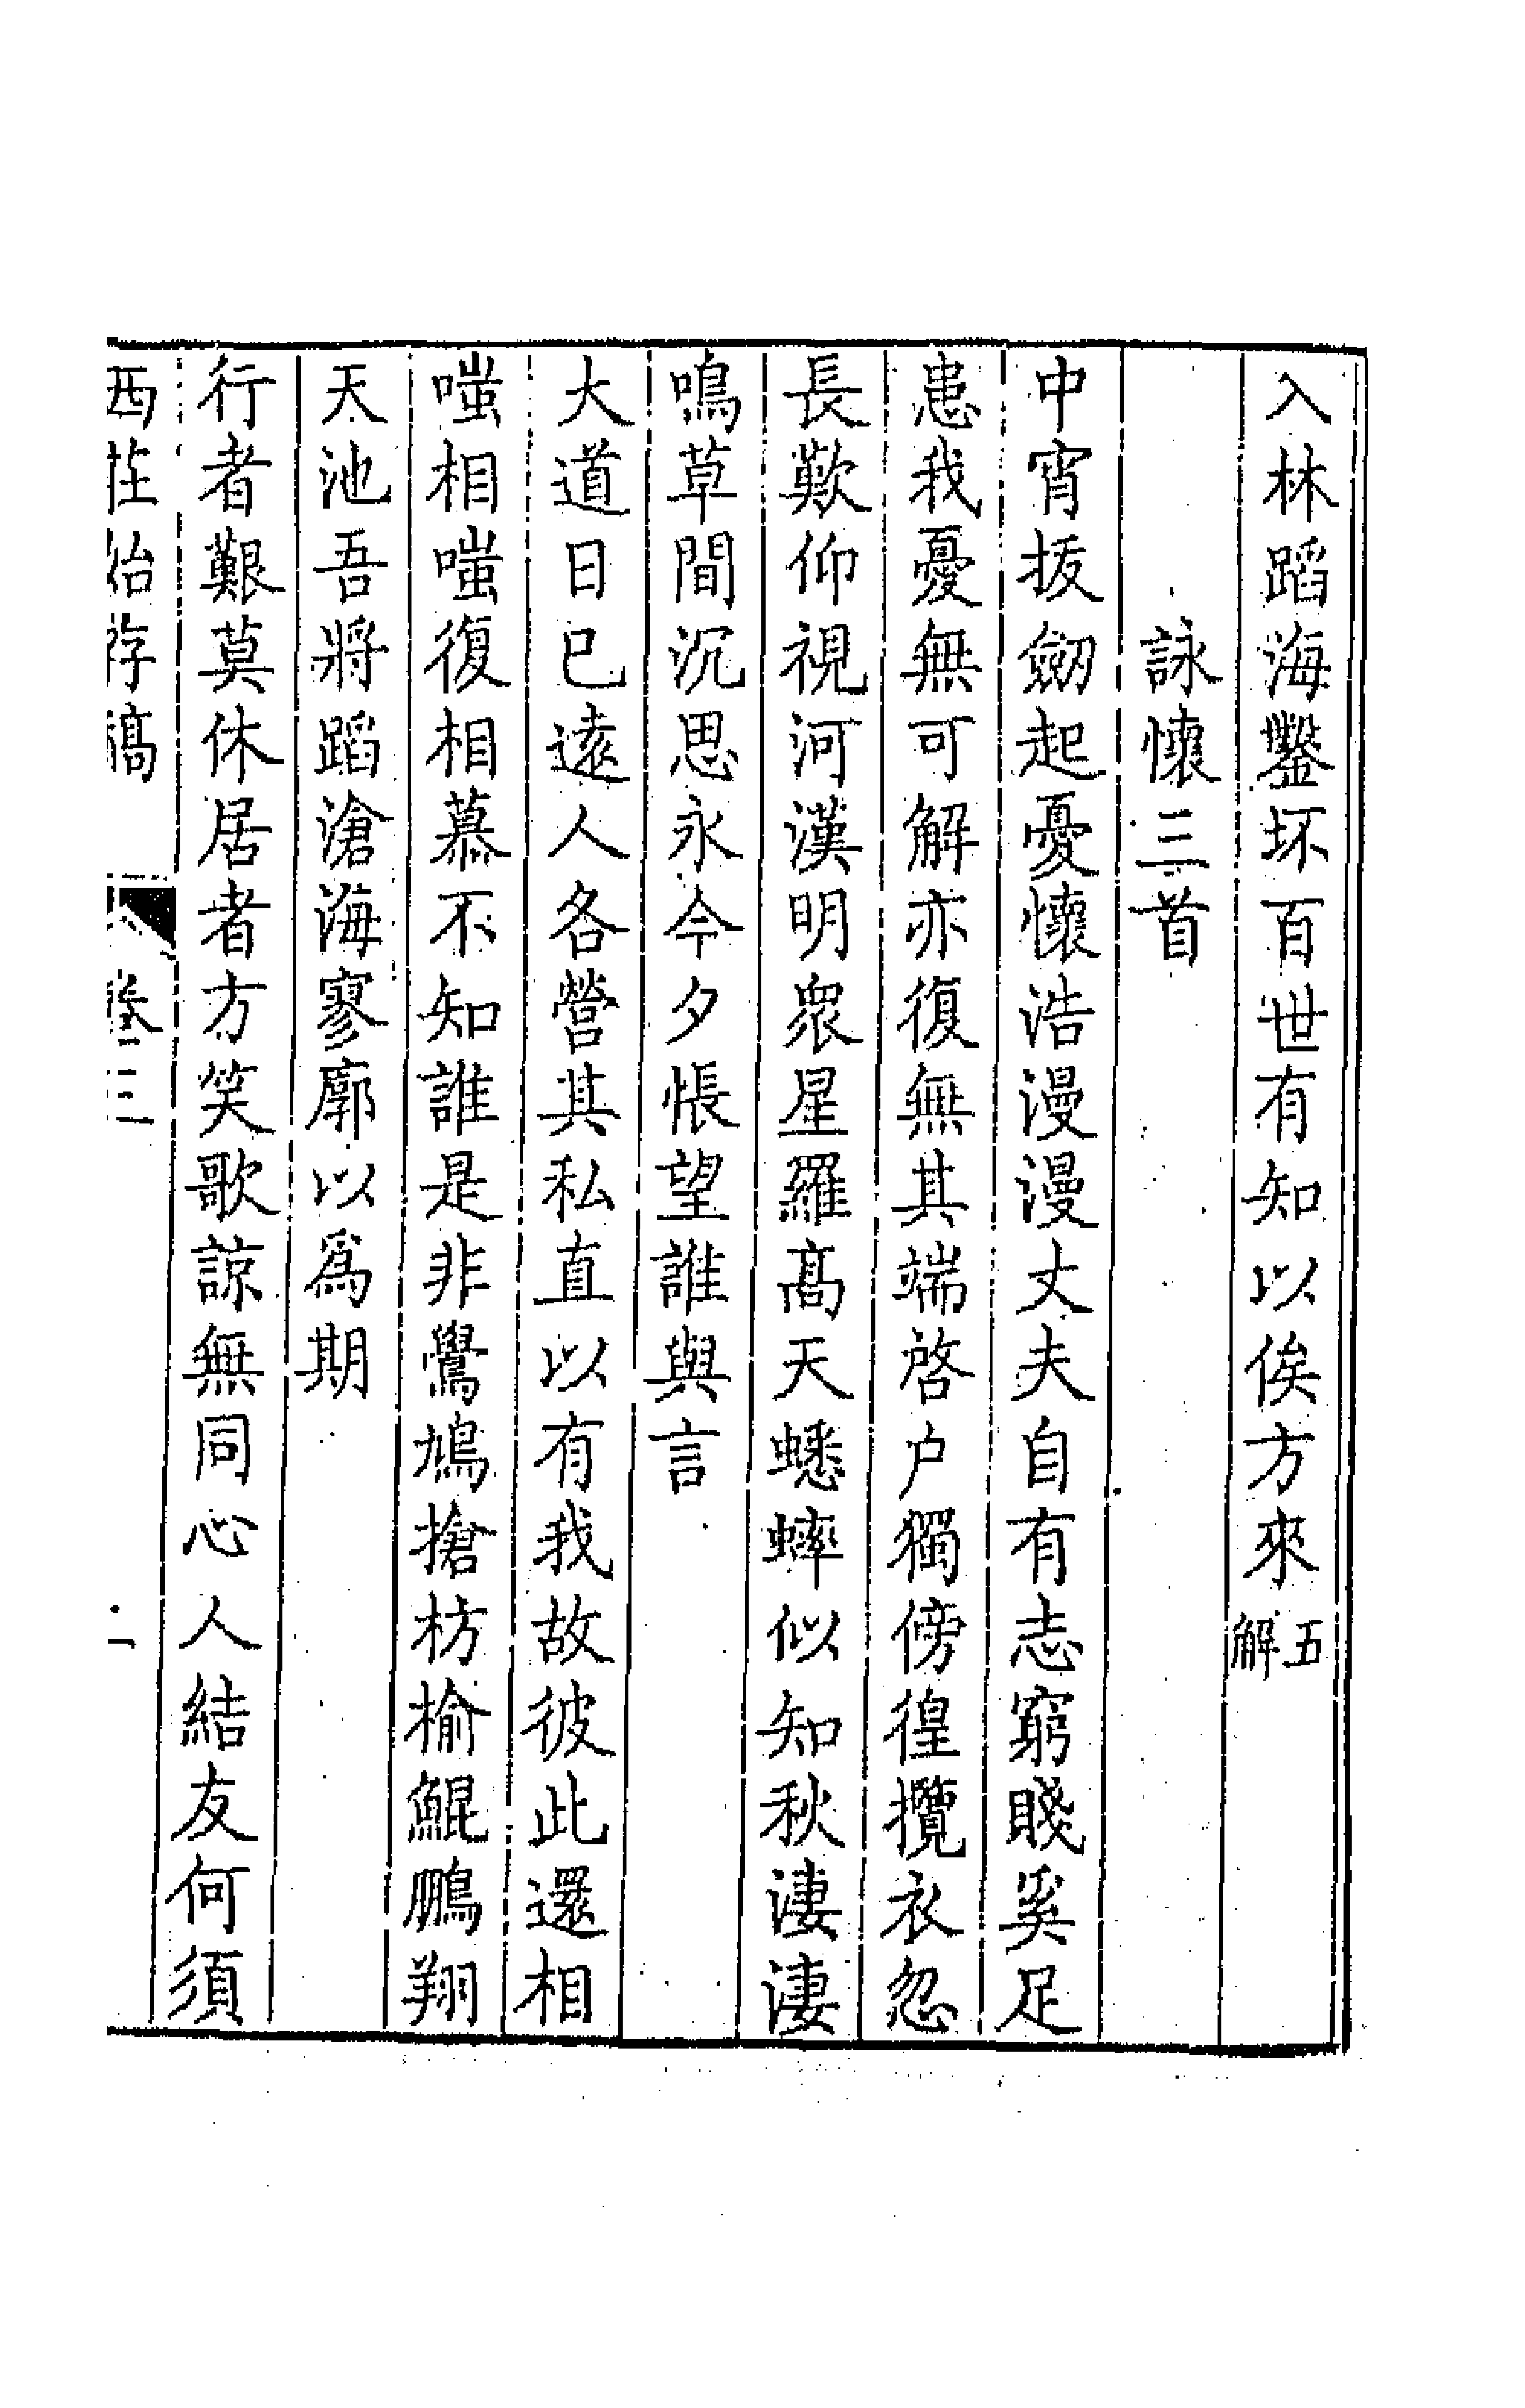 入林蹈海鑿坏百世有知以俟方來五解
詠懷三首
中宵拔劒起憂懷浩漫漫丈夫自有志窮賤奚足
患我憂無可解亦復無其端啓户獨傍徨攬衣忽
長歎仰視河漢明衆星羅高天蟋蟀似知秋淒淒
鳴草間沉思永今夕悵望誰與言
大道日已遠人各營其私直以有我故彼此還相
嗤相嗤復相慕不知誰是非鷽鳩搶枋榆鯤鵬翔
天池吾將蹈滄海寥廓以爲期
行者艱莫休居者方笑歌諒無同心人結友何須
西 存稿 卷三